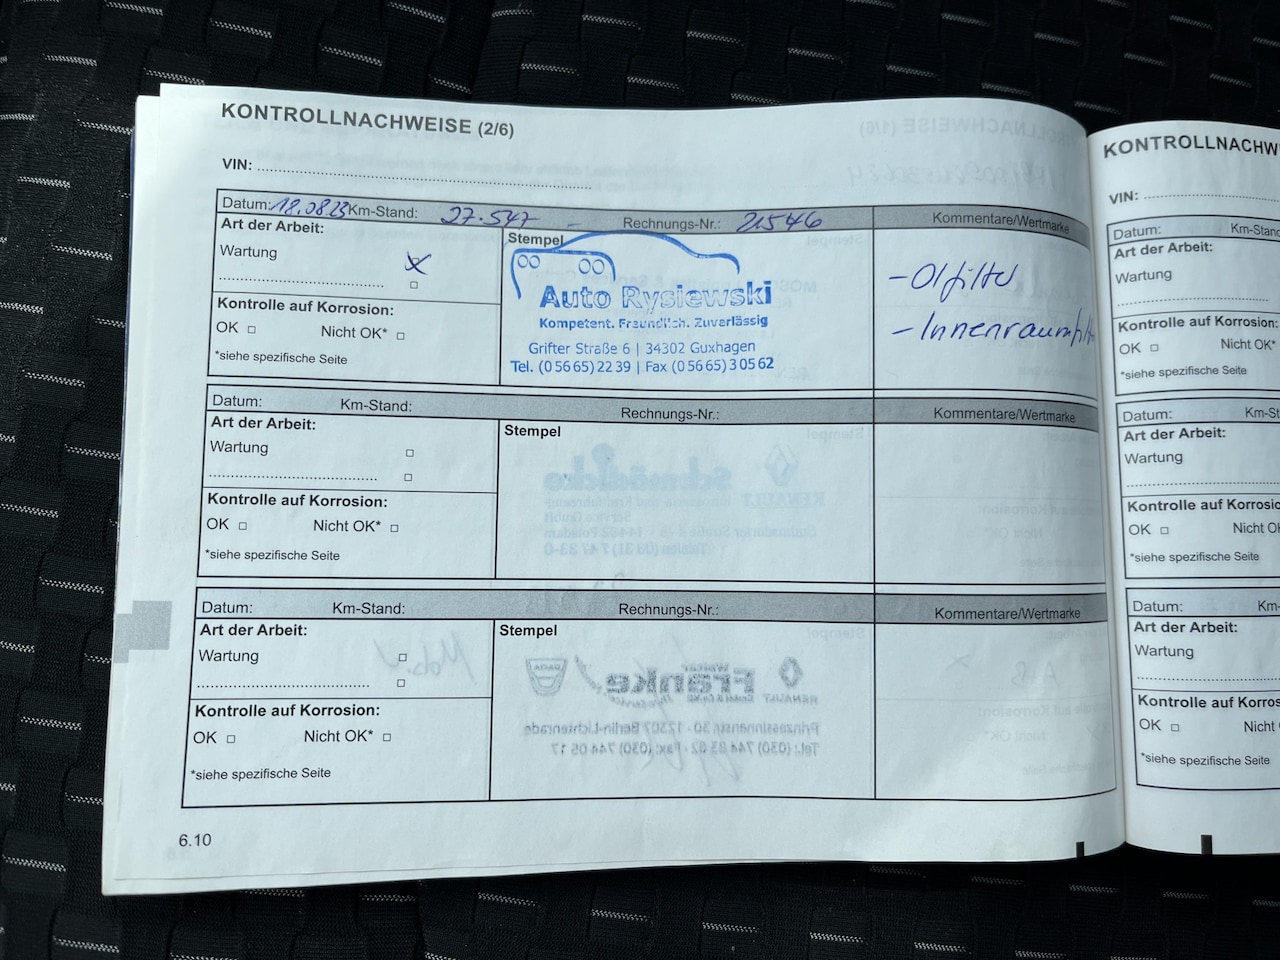 KONTROLLNACHWEISE (2/6)
VIN:
Datum: 18.08.23 Km-Stand: 27.547 - Rechnungs-Nr.: 21546 Kommentare/Wertmarke
Art der Arbeit:
Wartung x
Kontrolle auf Korrosion:
OK □ Nicht OK* □
*siehe spezifische Seite
Stempel
Auto Rysiewski
Kompetent. Freundlich. Zuverlässig
Grifter Straße 6 | 34302 Guxhagen
Tel. (0 56 65) 22 39 | Fax (0 56 65) 3 05 62
- Olfilter
- Innenraumfilter
Datum: Km-Stand: Rechnungs-Nr.: Kommentare/Wertmarke
Art der Arbeit:
Wartung □
Kontrolle auf Korrosion:
OK □ Nicht OK* □
*siehe spezifische Seite
Stempel
Datum: Km-Stand: Rechnungs-Nr.: Kommentare/Wertmarke
Art der Arbeit:
Wartung □
Kontrolle auf Korrosion:
OK □ Nicht OK* □
*siehe spezifische Seite
Stempel
6.10
KONTROLLNACHW
VIN:
Datum: Km-Stand
Art der Arbeit:
Wartung
Kontrolle auf Korrosion:
OK □ Nicht OK*
*siehe spezifische Seite
Datum: Km-St
Art der Arbeit:
Wartung
Kontrolle auf Korrosio
OK □ Nicht OK
*siehe spezifische Seite
Datum: Km-
Art der Arbeit:
Wartung
Kontrolle auf Korros
OK □ Nicht
*siehe spezifische Seite